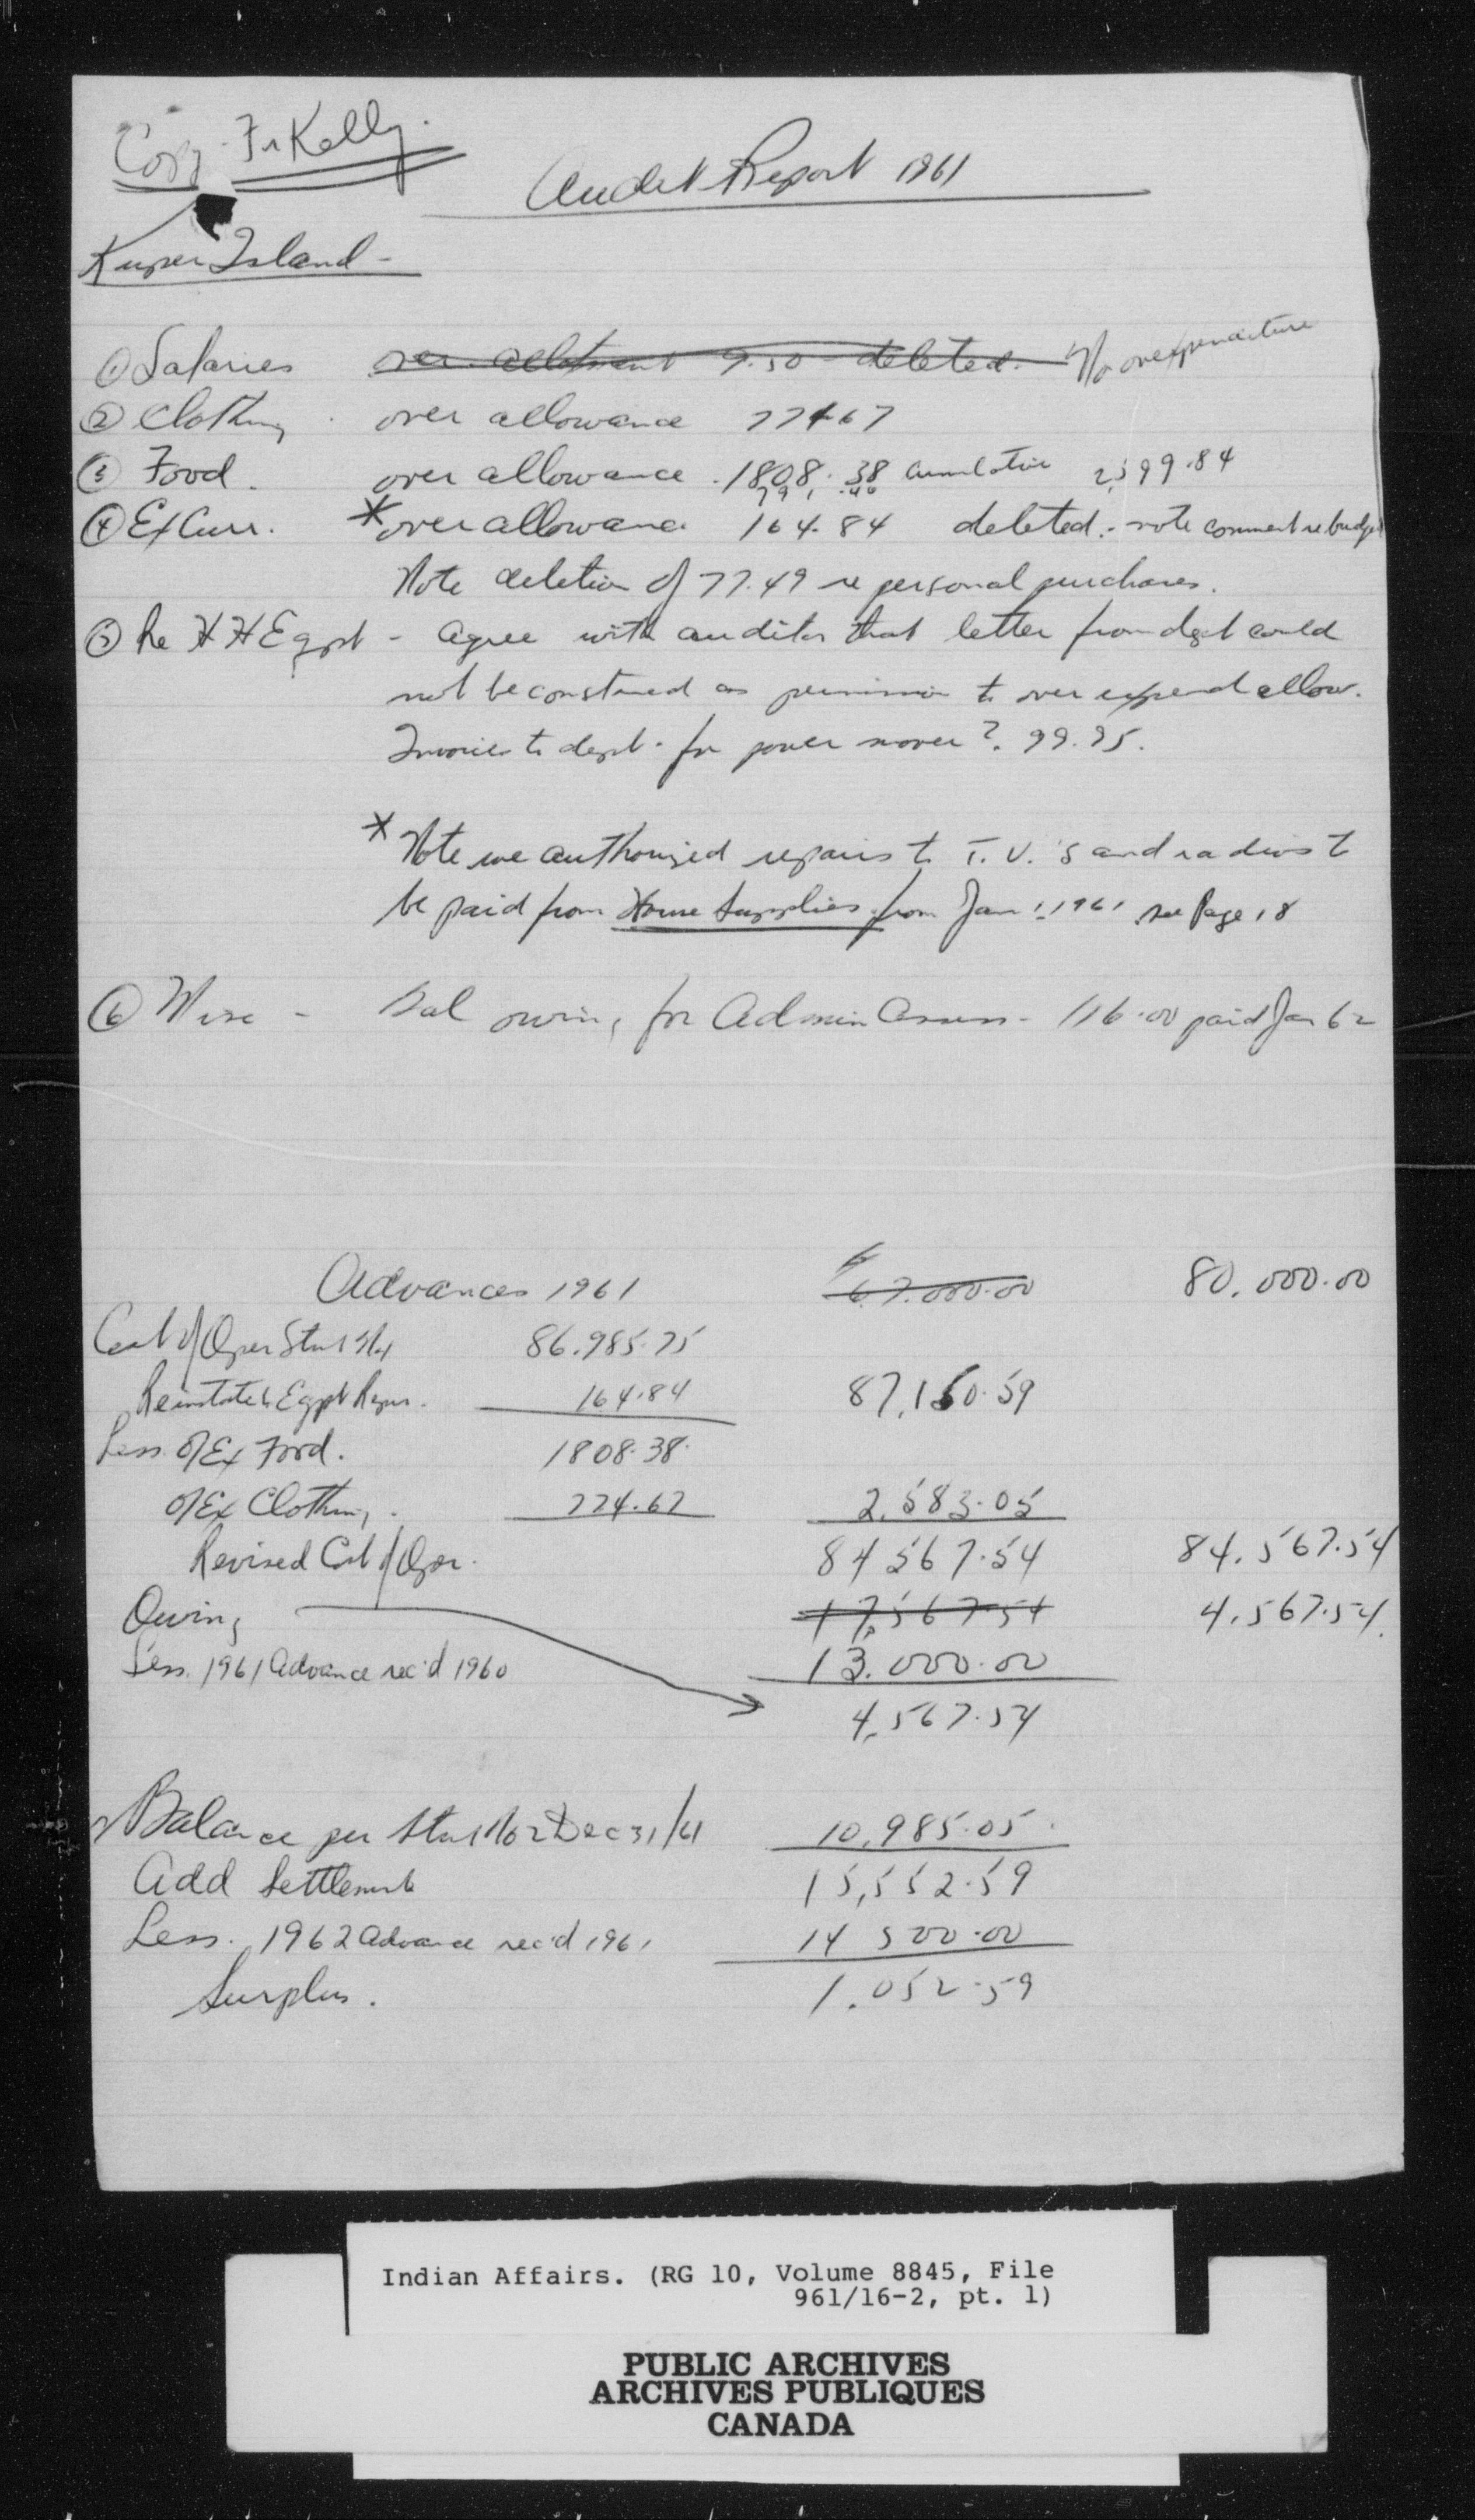 Copy - Fr Kelly.
Audit Report 1961
Kuper Island -
① Salaries over allotment 9.50 - deleted. No overexpenditure
② Clothing over allowance 774.67
③ Food. over allowance 1808.38 cumulative 2,599.84
791.46
④ ExCurr. *over allowance 164.84 deleted - note comment re budget
Note deletion of 77.49 re personal purchases.
⑤ Re H H Eqpt - agree with auditor that letter from dept could
not be construed as permission to over expend allow.
Invoices to dept. for power mower ? 99.95.
* Note we authorized repairs to T.V.'s and radios to
be paid from House Supplies from Jan 1, 1961 see Page 18
⑥ Misc - Bal owing for Admin Assess - 116.00 paid Jan 62
Advances 1961 67.000.00 80,000.00
Cost of Oper Stmt 86,985.75
Reinstated Eqpt Reprs. 164.84 87,150.59
Less O/Ex Food. 1808.38
O/Ex Clothing. 774.67 2,583.05
Revised Cost of Oper. 84 567.54 84,567.54
Owing 17,567.54 4,567.54
Less 1961 Advance rec'd 1960 13,000.00
4,567.54
Balance per Stmt No 2 Dec 31/61 10,985.05
Add Settlement 15,552.59
Less. 1962 Advance rec'd 1961 14 500.00
Surplus. 1,052.59
Indian Affairs. (RG 10, Volume 8845, File
961/16-2, pt. 1)
PUBLIC ARCHIVES
ARCHIVES PUBLIQUES
CANADA